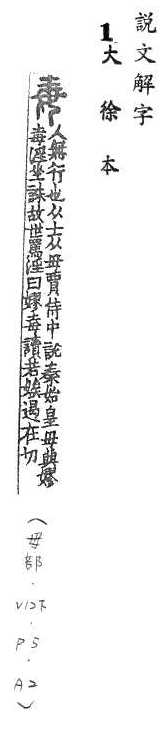 說文解字
1大徐本
毐人無行也从士从毋賈侍中說秦始皇母與嫪
毐淫坐誅故世罵淫曰嫪毐讀若娭遏在切
(毋部．V12下．P5．A2)